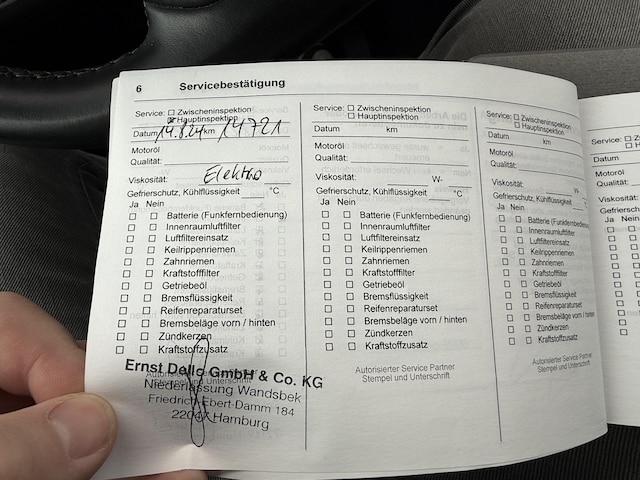 6 Servicebestätigung
Service: ☐ Zwischeninspektion
☒ Hauptinspektion
Datum 14.8.24 km 14721
Motoröl
Qualität:
Elektro
Viskosität:
Gefrierschutz, Kühlflüssigkeit °C
Ja Nein
☐ ☐ Batterie (Funkfernbedienung)
☐ ☐ Innenraumluftfilter
☐ ☐ Luftfiltereinsatz
☐ ☐ Keilrippenriemen
☐ ☐ Zahnriemen
☐ ☐ Kraftstofffilter
☐ ☐ Getriebeöl
☐ ☐ Bremsflüssigkeit
☐ ☐ Reifenreparaturset
☐ ☐ Bremsbeläge vorn / hinten
☐ ☐ Zündkerzen
☐ ☐ Kraftstoffzusatz
Autorisierter Service Partner
Stempel und Unterschrift
Ernst Dello GmbH & Co. KG
Niederlassung Wandsbek
Friedrich-Ebert-Damm 184
22047 Hamburg
Service: ☐ Zwischeninspektion
☐ Hauptinspektion
Datum km
Motoröl
Qualität:
Viskosität: W-
Gefrierschutz, Kühlflüssigkeit °C
Ja Nein
☐ ☐ Batterie (Funkfernbedienung)
☐ ☐ Innenraumluftfilter
☐ ☐ Luftfiltereinsatz
☐ ☐ Keilrippenriemen
☐ ☐ Zahnriemen
☐ ☐ Kraftstofffilter
☐ ☐ Getriebeöl
☐ ☐ Bremsflüssigkeit
☐ ☐ Reifenreparaturset
☐ ☐ Bremsbeläge vorn / hinten
☐ ☐ Zündkerzen
☐ ☐ Kraftstoffzusatz
Autorisierter Service Partner
Stempel und Unterschrift
Service: ☐ Zwischeninspektion
☐ Hauptinspektion
Datum km
Motoröl
Qualität:
Viskosität: W-
Gefrierschutz, Kühlflüssigkeit
Ja Nein
☐ ☐ Batterie (Funkfernbedienung)
☐ ☐ Innenraumluftfilter
☐ ☐ Luftfiltereinsatz
☐ ☐ Keilrippenriemen
☐ ☐ Zahnriemen
☐ ☐ Kraftstofffilter
☐ ☐ Getriebeöl
☐ ☐ Bremsflüssigkeit
☐ ☐ Reifenreparaturset
☐ ☐ Bremsbeläge vorn / hinten
☐ ☐ Zündkerzen
☐ ☐ Kraftstoffzusatz
Autorisierter Service Partner
Stempel und Unterschrift
Service: ☐
☐
Datum
Motoröl
Qualität:
Viskosität:
Ja Nein